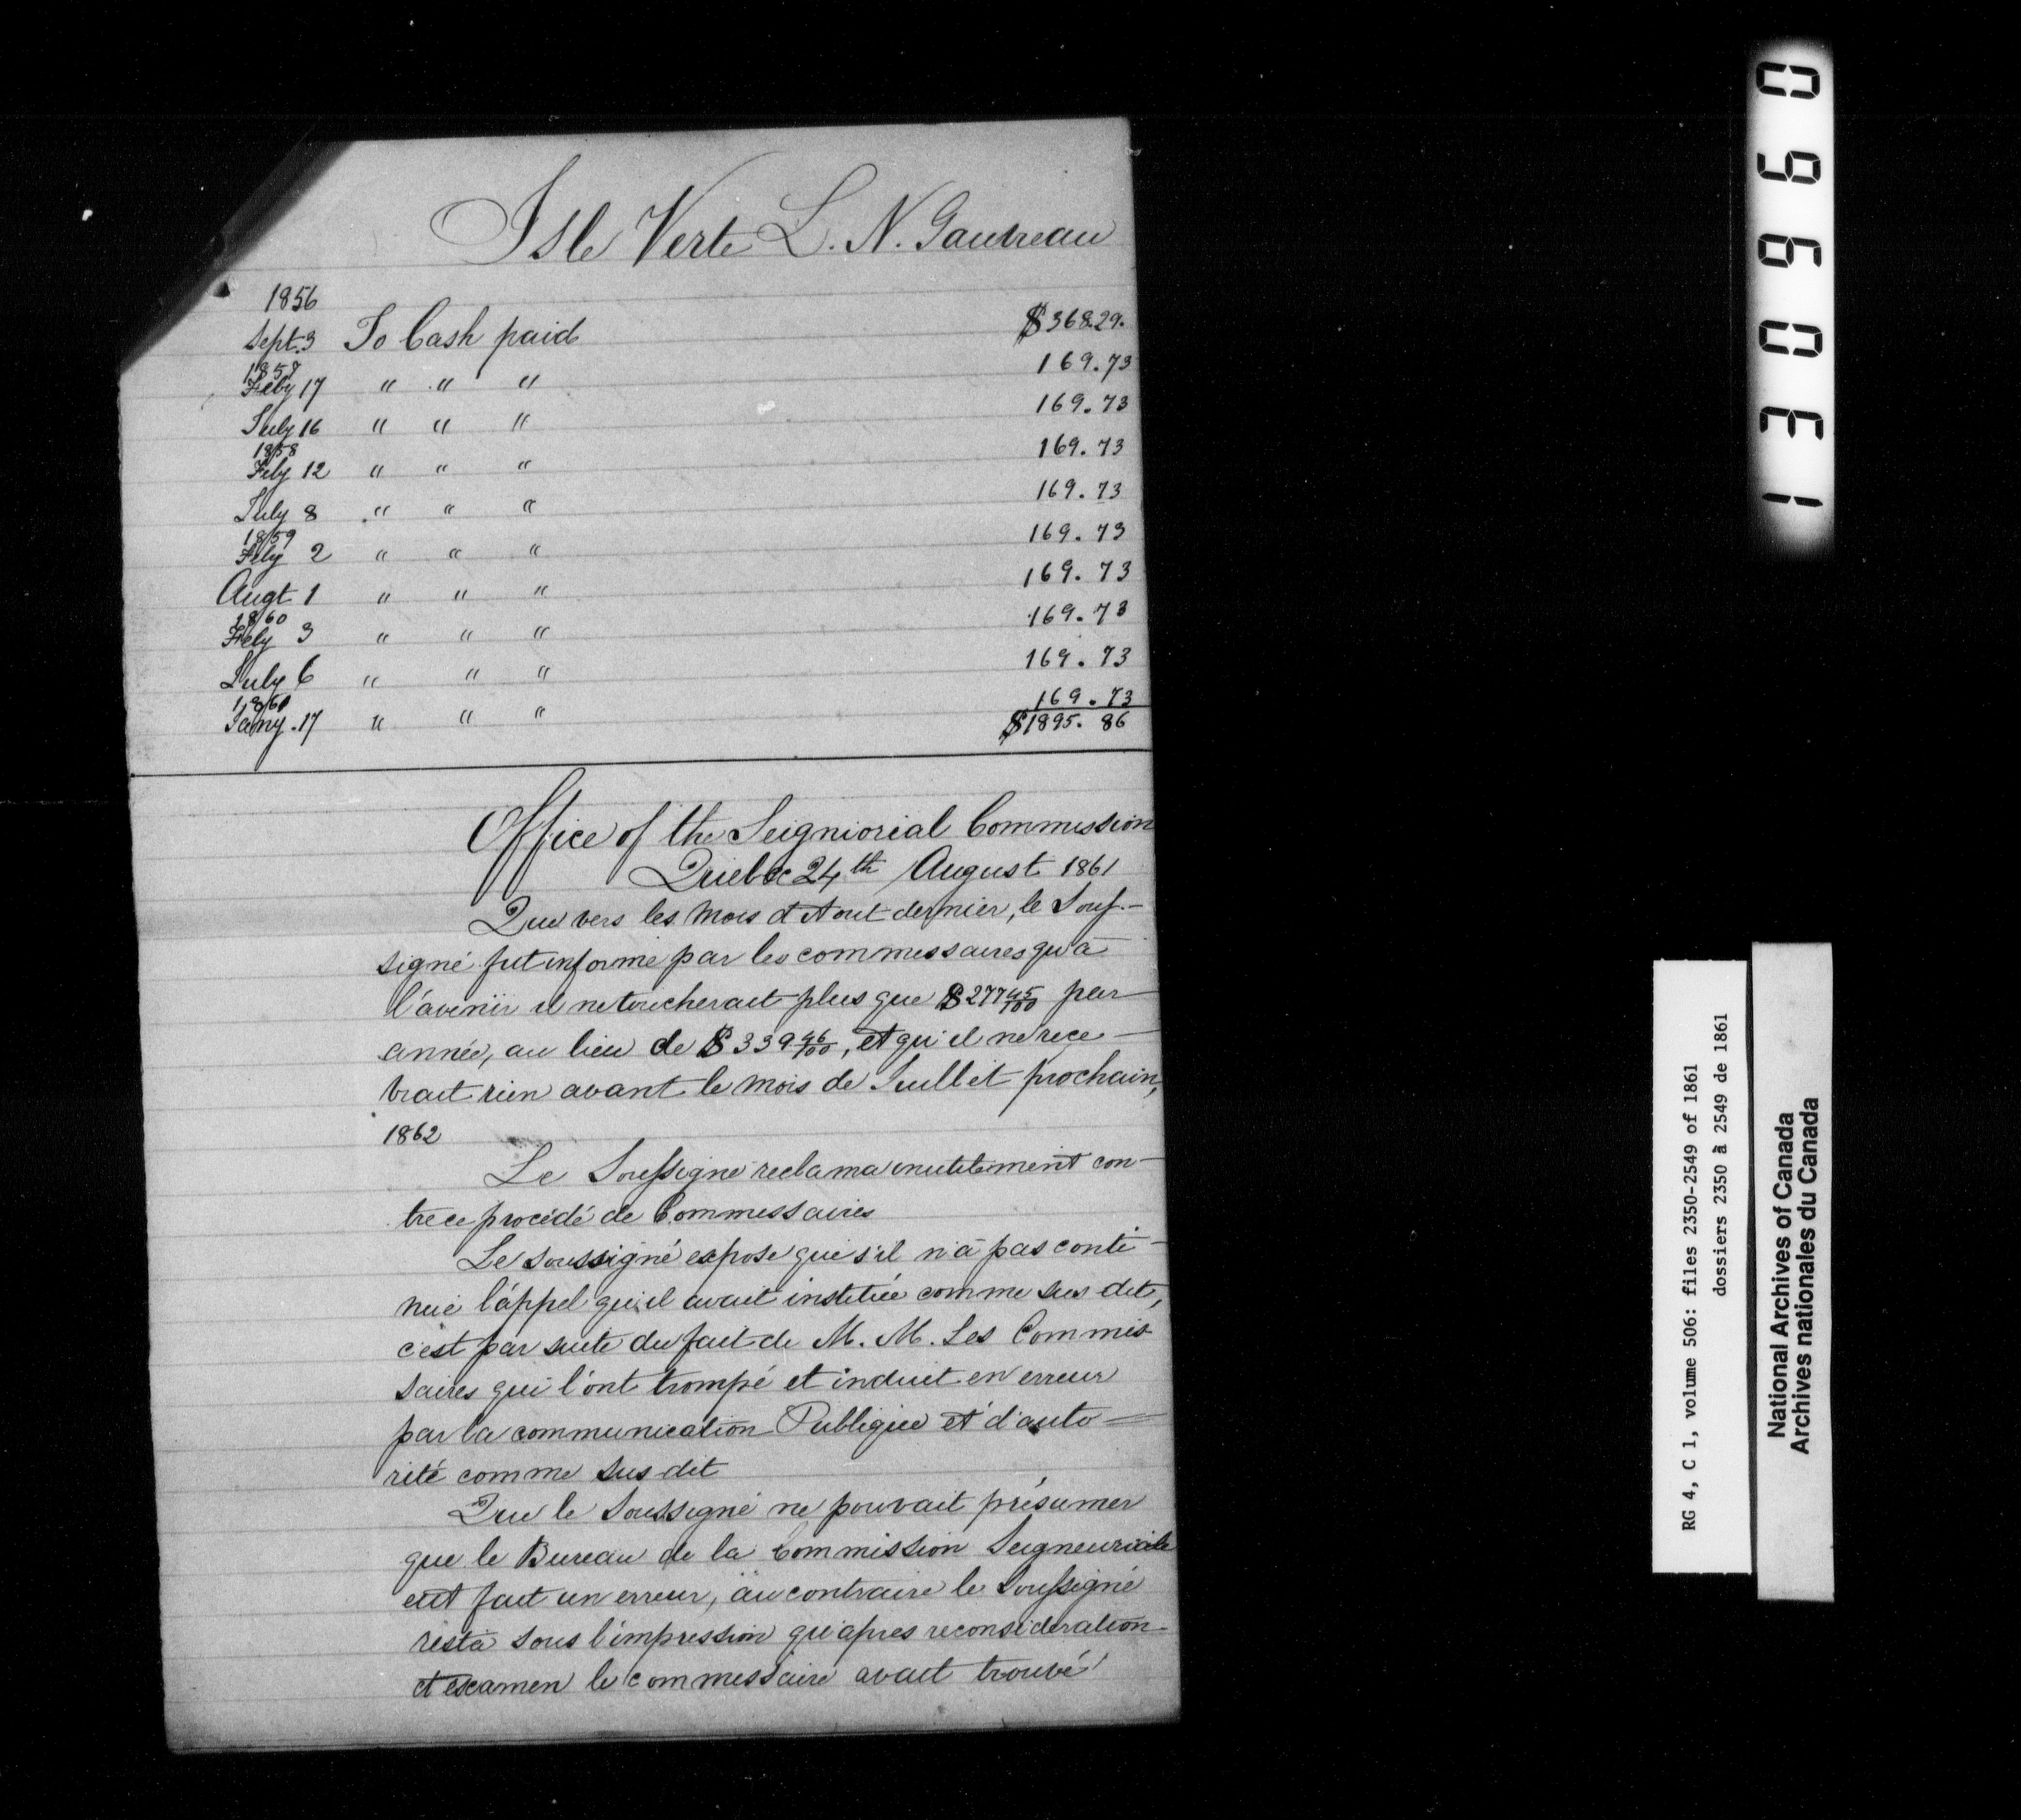 Isle Verte L. N. Gauvreau
1856
Sept. 3 To Cash paid $368.29.
1857
Feby 17 " " " 169.73
July 16 " " " 169.73
1858
Feby 12 " " " 169.73
July 8 " " " 169.73
1859
Feby 2 " " " 169.73
Augt 1 " " " 169.73
1860
Feby 3 " " " 169.73
July 6 " " " 169.73
1861
Jany. 17 " " " 169.73
$1895.86
Office of the Seigniorial Commission
Quebec 24th August 1861
Que vers les mois d'Aout dernier, le Sous-
signé fut informé par les commissaires qu'à
l'avenir il ne toucherait plus que $277 45/100 par
année, au lieu de $339 46/100, et qu'il ne rece-
vrait rien avant le mois de Juillet prochain,
1862
Le Soussigné reclama inutilement con-
tre ce procédé de Commissaires
Le soussigné expose que s'il n'a pas conti-
nué l'appel qu'il avait instituée comme sus dit,
c'est par suite du fait de M. M. Les Commis
saires qui l'ont trompé et induit en erreur
par la communication Publique et d'auto-
rité comme sus dit
Que le Soussigné ne pouvait présumer
que le Bureau de la Commission Seigneuriale
eut fait un erreur, au contraire le Soussigné
resta sous l'impression qu'apres reconsideration
et examen le commissaire avait trouvé
130960
RG 4, C 1, volume 506: files 2350-2549 of 1861
dossiers 2350 à 2549 de 1861
National Archives of Canada
Archives nationales du Canada